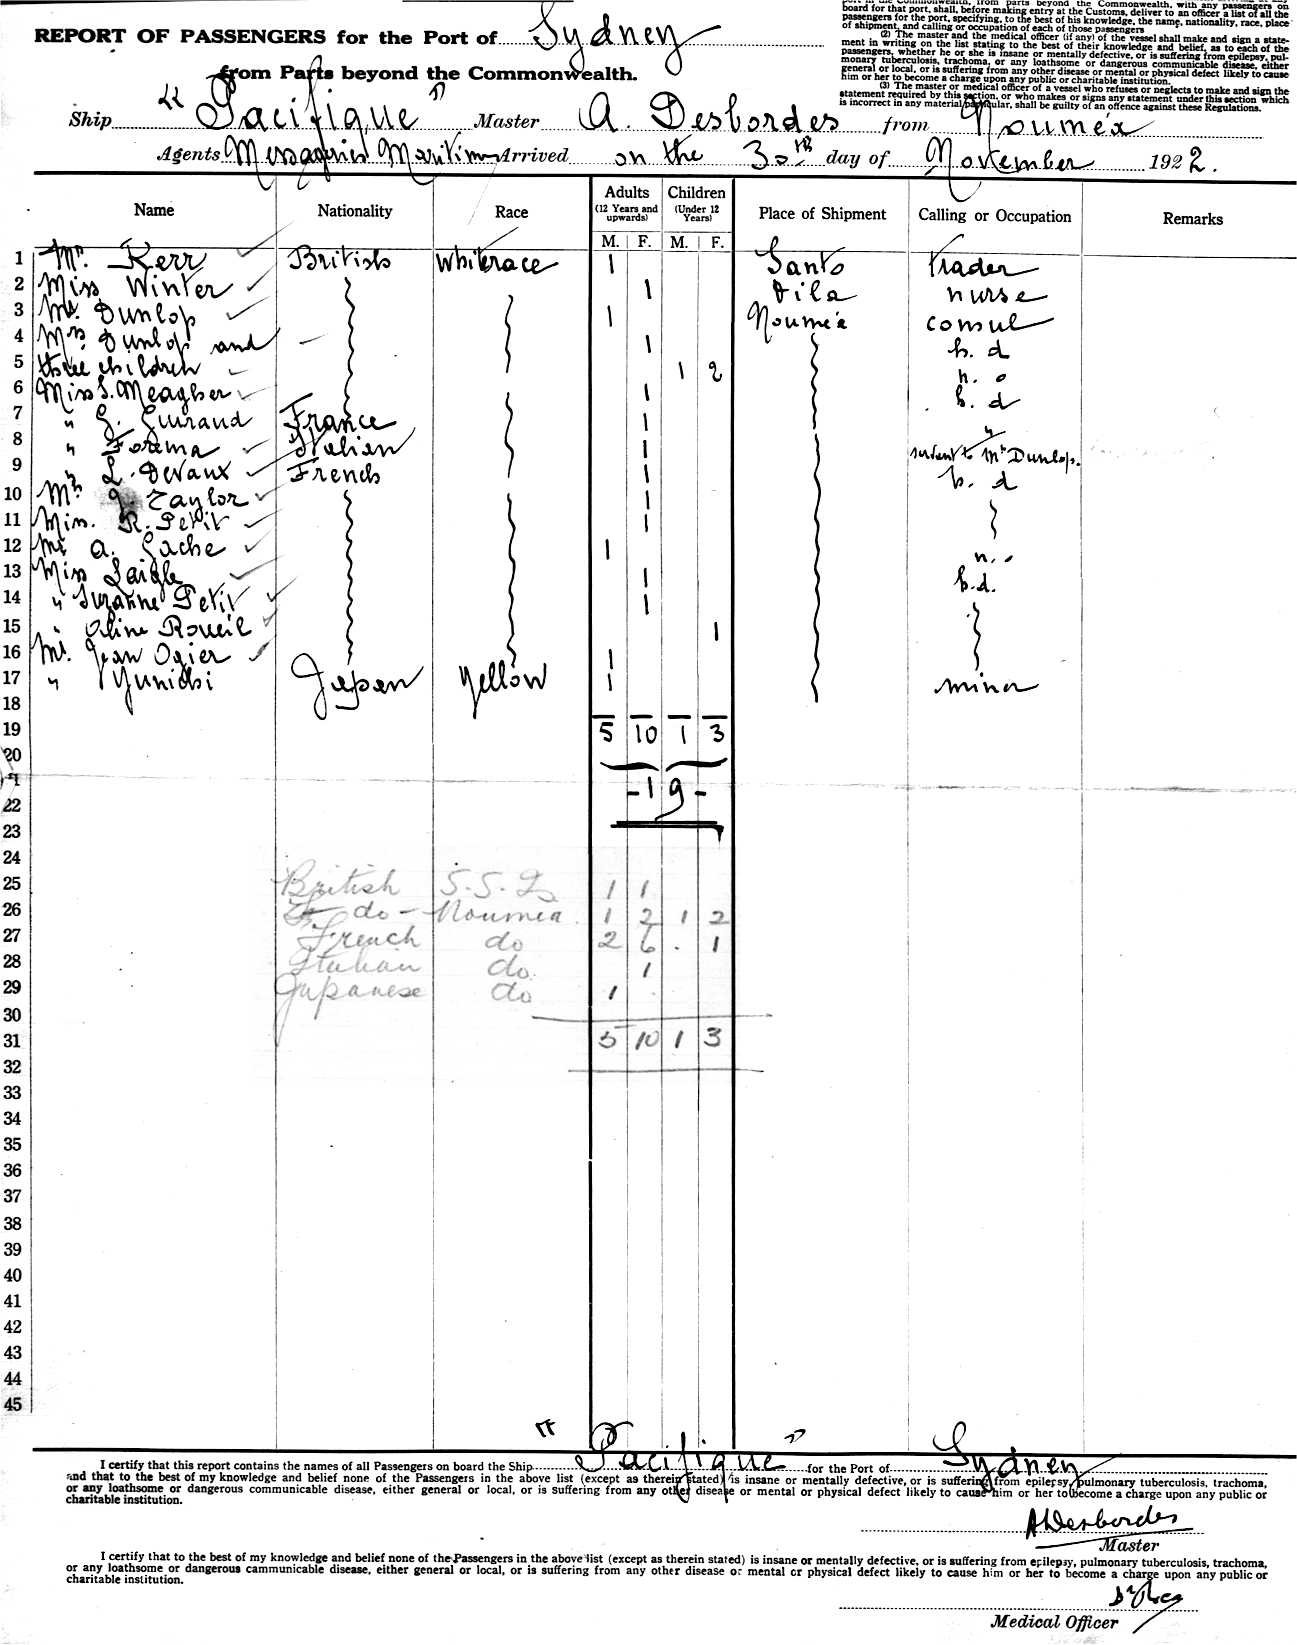 port in the Commonwealth, from parts beyond the Commonwealth, with any passengers on
board for that port, shall, before making entry at the Customs, deliver to an officer a list of all the
passengers for the port, specifying, to the best of his knowledge, the name, nationality, race, place
of shipment, and calling or occupation of each of those passengers
(2) The master and the medical officer (if any) of the vessel shall make and sign a state-
ment in writing on the list stating to the best of their knowledge and belief, as to each of the
passengers, whether he or she is insane or mentally defective, or is suffering from epilepsy, pul-
monary tuberculosis, trachoma, or any loathsome or dangerous communicable disease, either
general or local, or is suffering from any other disease or mental or physical defect likely to cause
him or her to become a charge upon any public or charitable institution.
(3) The master or medical officer of a vessel who refuses or neglects to make and sign the
statement required by this section, or who makes or signs any statement under this section which
is incorrect in any material particular, shall be guilty of an offence against these Regulations.
REPORT OF PASSENGERS for the Port of Sydney
from Parts beyond the Commonwealth.
Ship "Pacifique" Master A. Desbordes from Nouméa
Agents Messageries Maritimes Arrived on the 30th day of November 1922.
Name Nationality Race Adults (12 Years and upwards) Children (Under 12 Years) Place of Shipment Calling or Occupation Remarks
M. F. M. F.
1 Mr. Kerr British White race 1 Santo trader
2 Miss Winter 1 Vila nurse
3 Mr. Dunlop 1 Nouméa consul
4 Mrs. Dunlop and 1 h. d
5 three children 1 2 n. o
6 Miss S. Meagher 1 h. d
7 " G. Guiraud France 1 "
8 " Forema Italian 1 servant to Mrs Dunlop.
9 Mrs L. Devaux French 1 h. d
10 Taylor 1
11 Miss. R. Petit 1
12 Mr A. Gache 1 n. o
13 Miss Laigle 1 h. d.
14 " Suzanne Petit 1
15 " Aline Roueil 1
16 Mr. Jean Ogier 1
17 " Yunichi Japan Yellow 1 minor
18
19 5 10 1 3
20
21
22 -19-
23
24
25 British S.S.Is 1 1
26 do - Noumea 1 2 1 2
27 French do 2 6 . 1
28 Italian do. 1
29 Japanese do 1
30
31 5 10 1 3
32
33
34
35
36
37
38
39
40
41
42
43
44
45
I certify that this report contains the names of all Passengers on board the Ship "Pacifique" for the Port of Sydney
and that to the best of my knowledge and belief none of the Passengers in the above list (except as therein stated) is insane or mentally defective, or is suffering from epilepsy, pulmonary tuberculosis, trachoma,
or any loathsome or dangerous communicable disease, either general or local, or is suffering from any other disease or mental or physical defect likely to cause him or her to become a charge upon any public or
charitable institution.
ADesbordes
Master
I certify that to the best of my knowledge and belief none of the Passengers in the above list (except as therein stated) is insane or mentally defective, or is suffering from epilepsy, pulmonary tuberculosis, trachoma,
or any loathsome or dangerous cammunicable disease, either general or local, or is suffering from any other disease or mental or physical defect likely to cause him or her to become a charge upon any public or
charitable institution.
Medical Officer